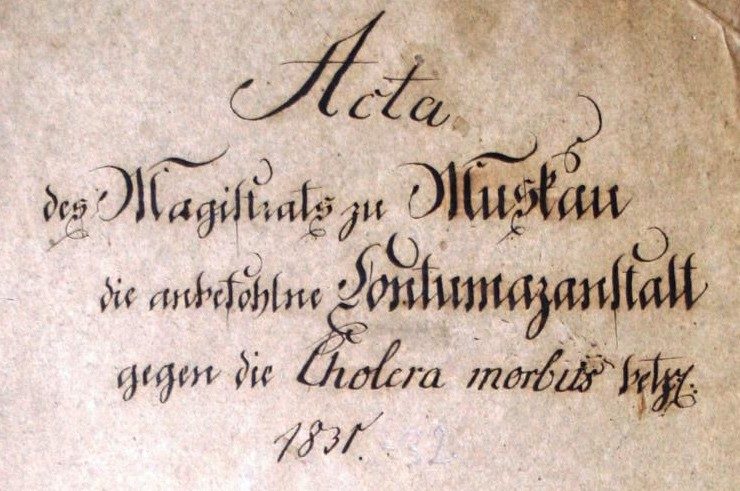 Acta
des Magistrats zu Muskau
die anbefohlne Contumazanstalt
gegen die Cholera morbus betr:
1831. 32